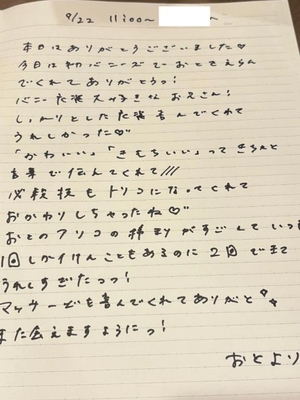 9/22 11:00〜
本日はありがとうございました♡
今日は初バニーズでおとをえらん
でくれてありがとうっ!
バニー衣装大好きなお兄さん!
しっかりとした衣装喜んでくれて
うれしかった♡
「かわいい」「きもちいい」ってきちんと
言葉で伝えてくれて///
必殺技もトリコになってくれて
おかわりしちゃったね♡
おとのアソコの締まりがすごしていつも
1回しかイけんこともあるのに2回でまで
うれしすぎたっっ!
マッサージも喜んでくれてありがと
また会えますようにっ!
おとより